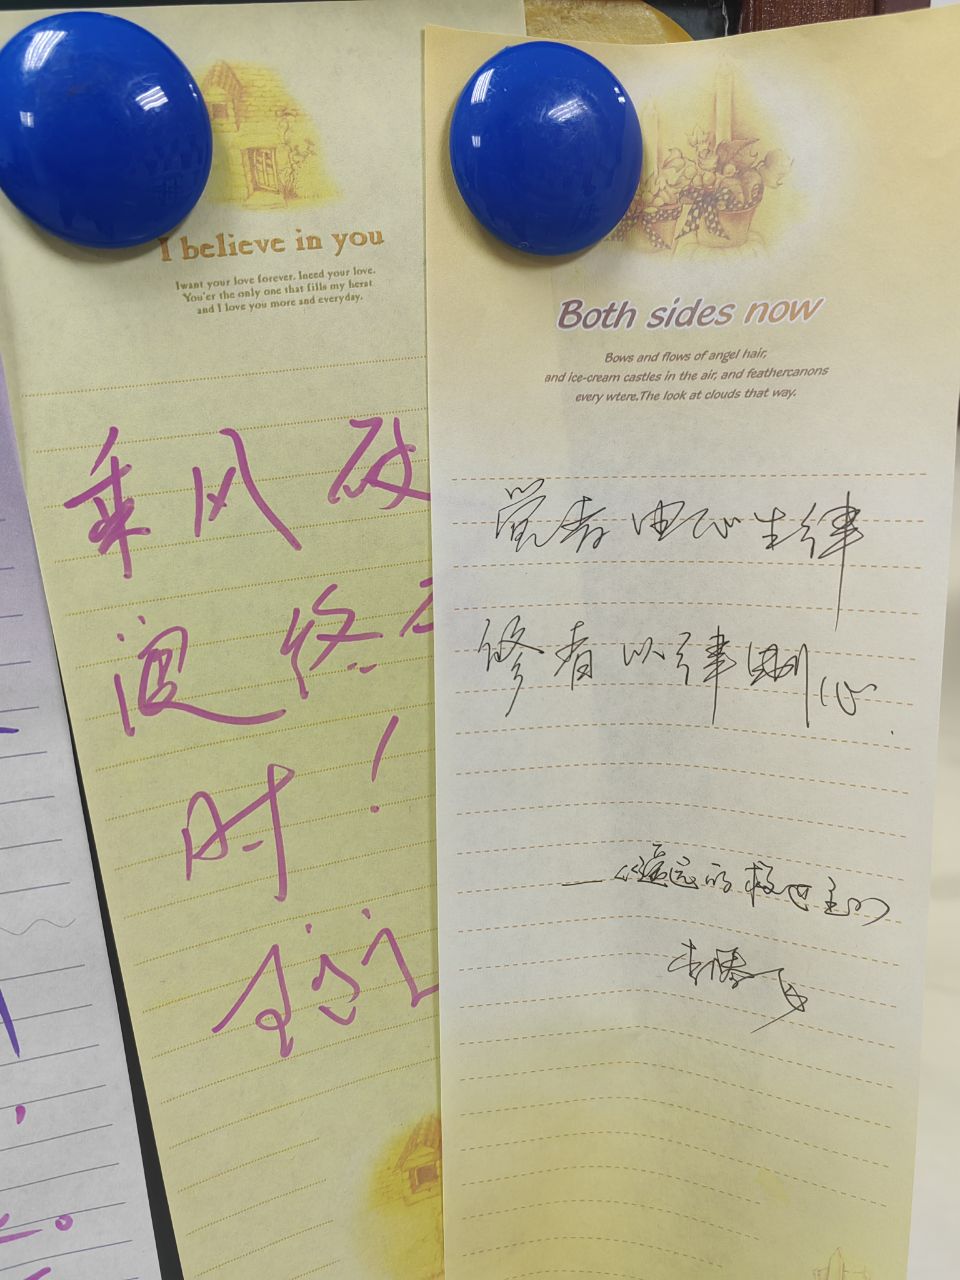 I believe in you
I want your love forever. Ineed your love.
You'er the only one that fills my herat
and I love you more and everyday.
乘风破
浪 终
时！
Both sides now
Bows and flows of angel hair,
and ice-cream castles in the air, and feathercanons
every wtere.The look at clouds that way.
觉者由心生律
修者以律制心.
——《遥远的救世主》